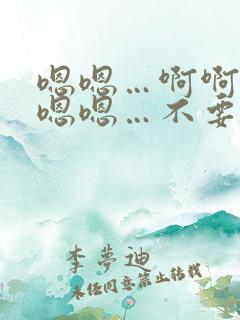 嗯嗯…啊啊
嗯嗯…不要
李梦迪
未经同意禁止转载